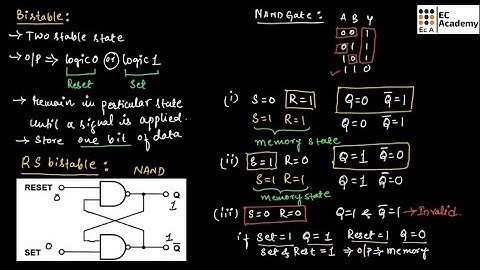 Bistable:
→ Two stable state
→ O/P ⇒ logic 0 or logic 1
Reset Set
→ Remain in perticular state
until a signal is applied.
→ Store one bit of data
RS bistable: NAND
RESET 0 Q 1
SET 0 Q̅ 1
NAND Gate:
A B Y
0 0 1
0 1 1
1 0 1
1 1 0
EC
Academy
ECA
(i) S=0 R=1 Q=0 Q̅=1
S=1 R=1 Q=0 Q̅=1
memory state
(ii) S=1 R=0 Q=1 Q̅=0
S=1 R=1 Q=1 Q̅=0
memory state
(iii) S=0 R=0 Q=1 & Q̅=1 → Invalid.
if Set=1 Q=1 Reset=1 Q=0
Set & Rest=1 ⇒ O/P ⇒ memory